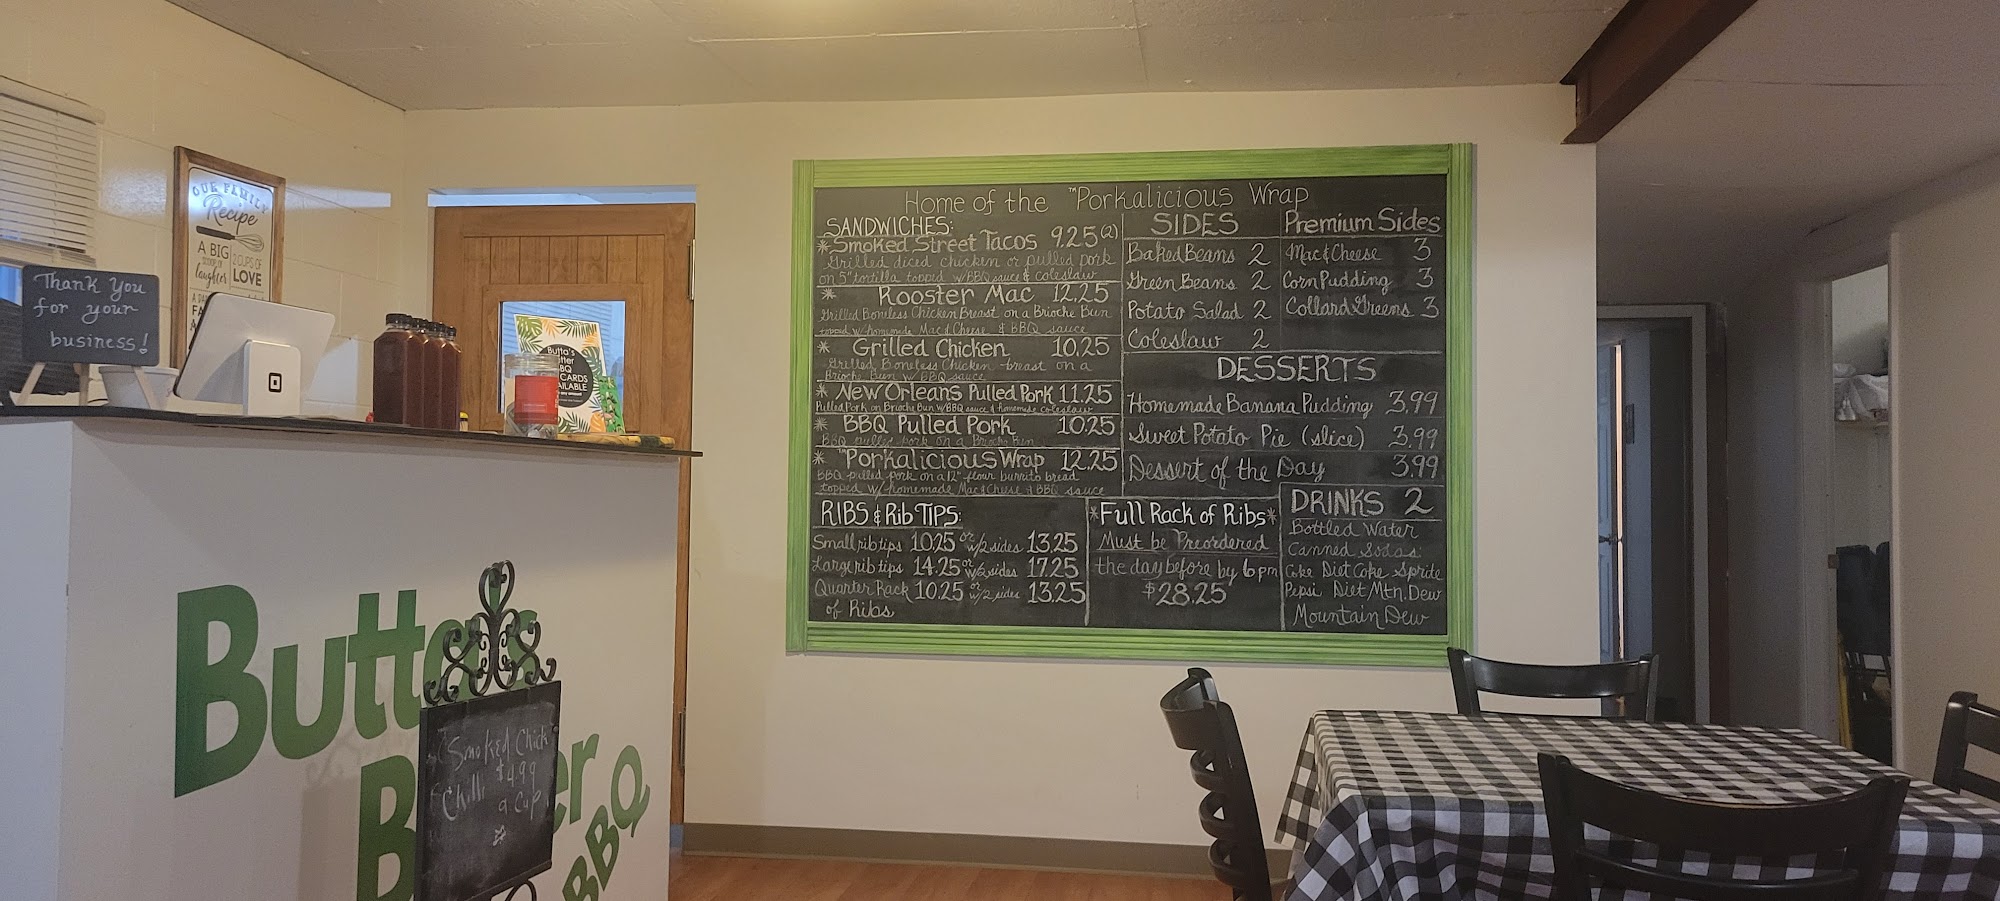 OUR FAMILY
Recipe
A BIG
SCOOP OF
laughter
2 CUPS OF
LOVE
Thank You
for your
business!
Butta's
BBQ
CARDS
Home of the ™Porkalicious Wrap
SANDWICHES:
* Smoked Street Tacos 9.25 (2)
Grilled diced chicken or pulled pork
on 5" tortilla topped w/BBQ sauce & coleslaw
* Rooster Mac 12.25
Grilled Boneless Chicken Breast on a Brioche Bun
topped w/homemade Mac & Cheese & BBQ sauce
* Grilled Chicken 10.25
Grilled Boneless Chicken breast on a
Brioche Bun w/BBQ sauce
* New Orleans Pulled Pork 11.25
Pulled Pork on Brioche Bun w/BBQ sauce & homemade coleslaw
* BBQ Pulled Pork 10.25
BBQ pulled pork on a Brioche Bun
* ™Porkalicious Wrap 12.25
BBQ pulled pork on a 12" flour burrito bread
topped w/homemade Mac & Cheese & BBQ sauce
RIBS & Rib TIPS:
Small rib tips 10.25 or w/2 sides 13.25
Large rib tips 14.25 or w/2 sides 17.25
Quarter Rack 10.25 or w/2 sides 13.25
of Ribs
*Full Rack of Ribs*
Must be Preordered
the day before by 6pm
$28.25
SIDES
Baked Beans 2
Green Beans 2
Potato Salad 2
Coleslaw 2
Premium Sides
Mac & Cheese 3
Corn Pudding 3
Collard Greens 3
DESSERTS
Homemade Banana Pudding 3.99
Sweet Potato Pie (slice) 3.99
Dessert of the Day 3.99
DRINKS 2
Bottled Water
Canned Sodas:
Coke Diet Coke Sprite
Pepsi Diet Mtn. Dew
Mountain Dew
Butta's
BBQ
Smoked Chick
Chili $4.99
a Cup